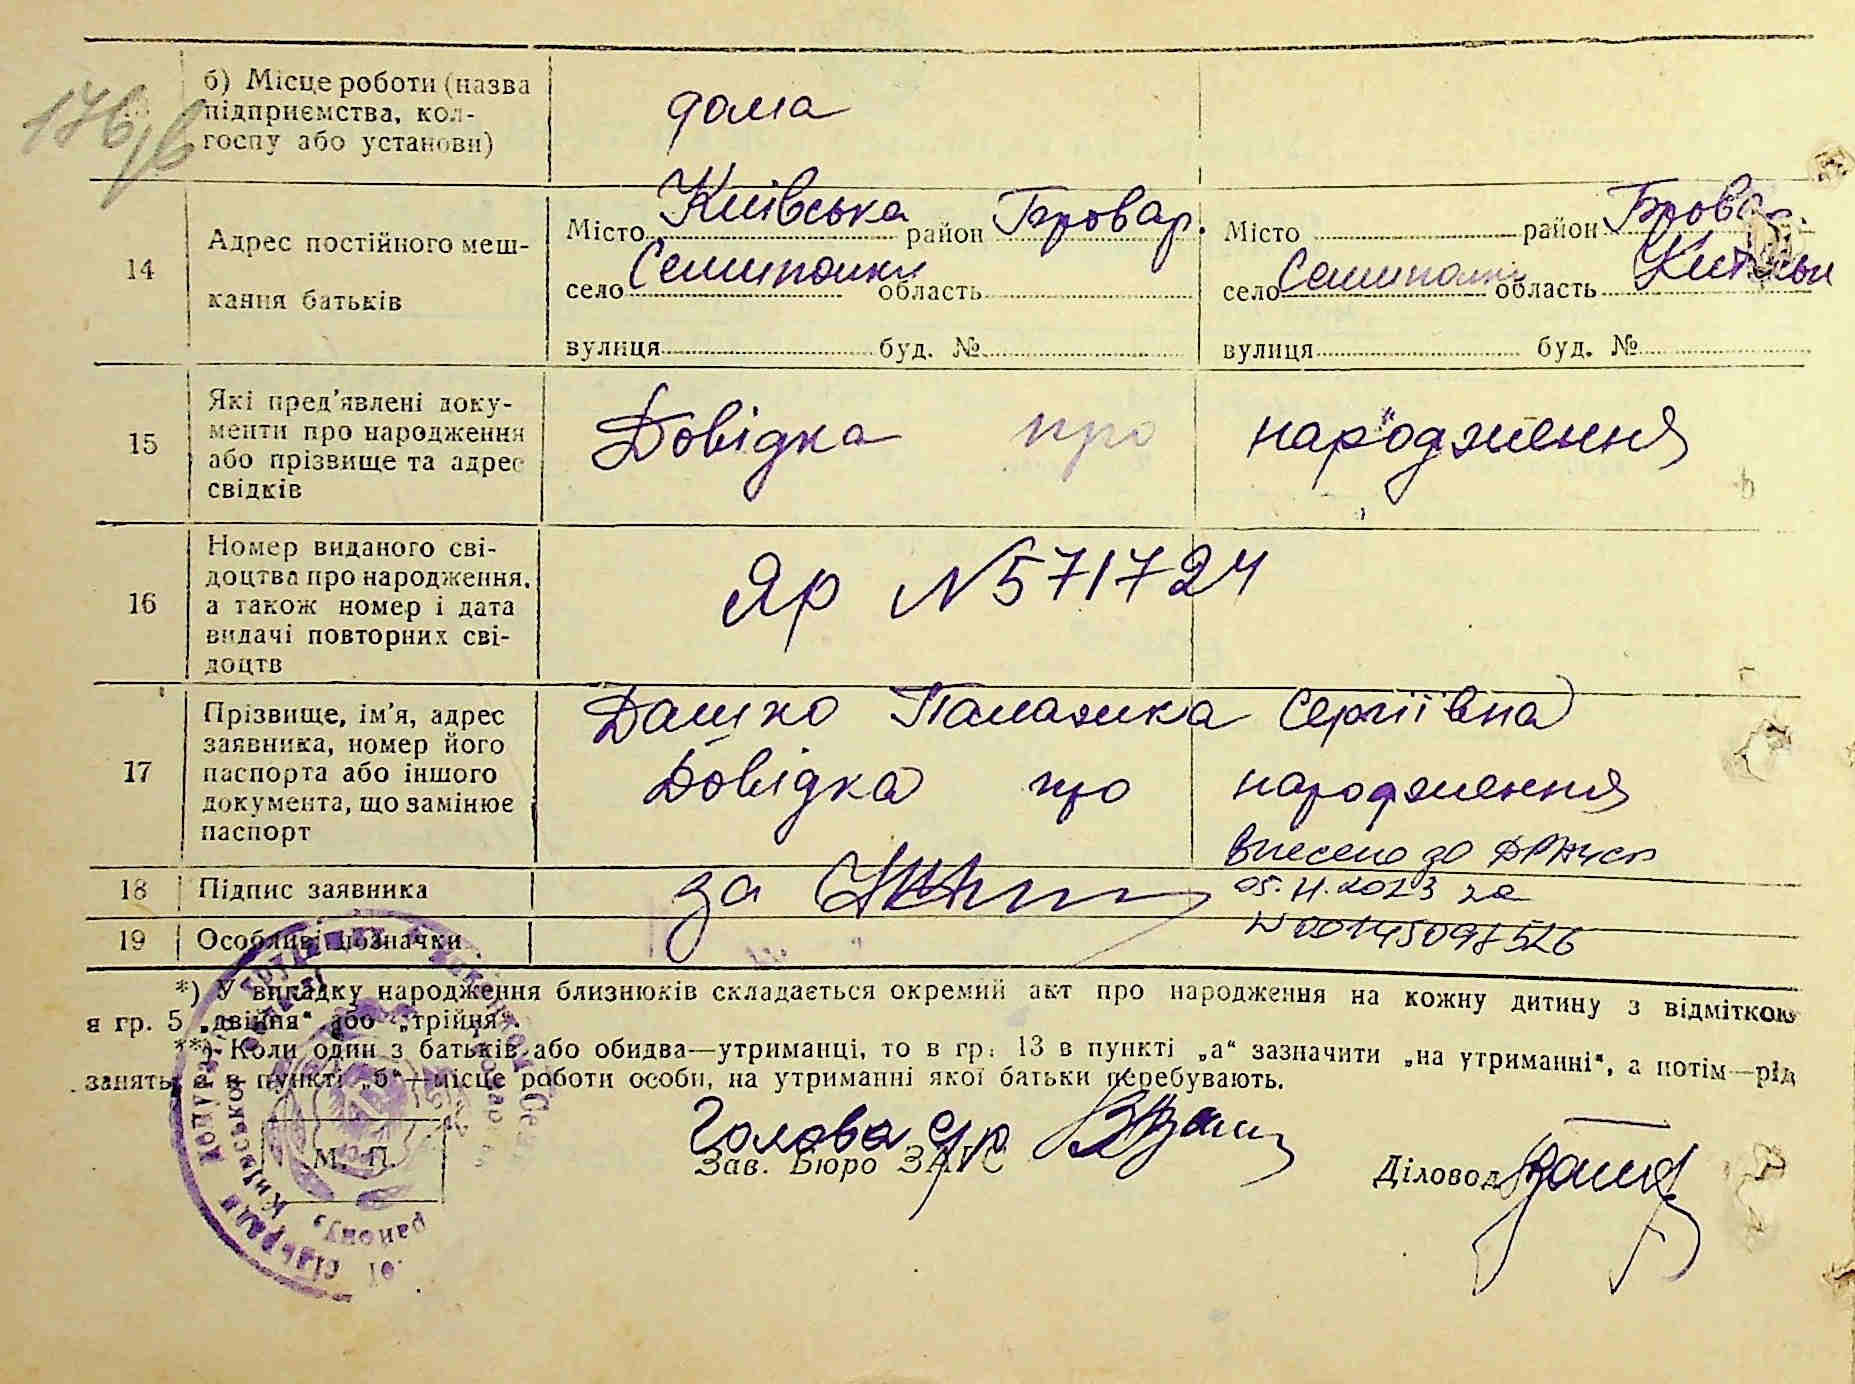 176
б) Місце роботи (назва
підприємства, кол-
госпу або установи)
дома
14
Адрес постійного меш-
кання батьків
Місто Київська район Бровар.
село Семиполки область
вулиця буд. №
Місто район Бровар.
село Семиполки область
вулиця буд. №
15
Які пред'явлені доку-
менти про народження
або прізвище та адрес
свідків
Довідка про народження
16
Номер виданого сві-
доцтва про народження,
а також номер і дата
видачі повторних сві-
доцтв
Яр N571724
17
Прізвище, ім'я, адрес
заявника, номер його
паспорта або іншого
документа, що замінює
паспорт
Дашко Паламка Сергіївна
Довідка про народження
внесено до ДРАЦСГ
18 Підпис заявника
за
05.11.2023 за
19 Особливі позначки
N 00145098526
*) У випадку народження близнюків складається окремий акт про народження на кожну дитину з відміткою
в гр. 5 „двійня“ або „трійня“.
**) Коли один з батьків або обидва—утриманці, то в гр. 13 в пункті „а“ зазначити „на утриманні“, а потім—рід
занять, в пункті „б“—місце роботи особи, на утриманні якої батьки перебувають.
Голова с/р
Зав. Бюро ЗАГС
Діловод
М. П.